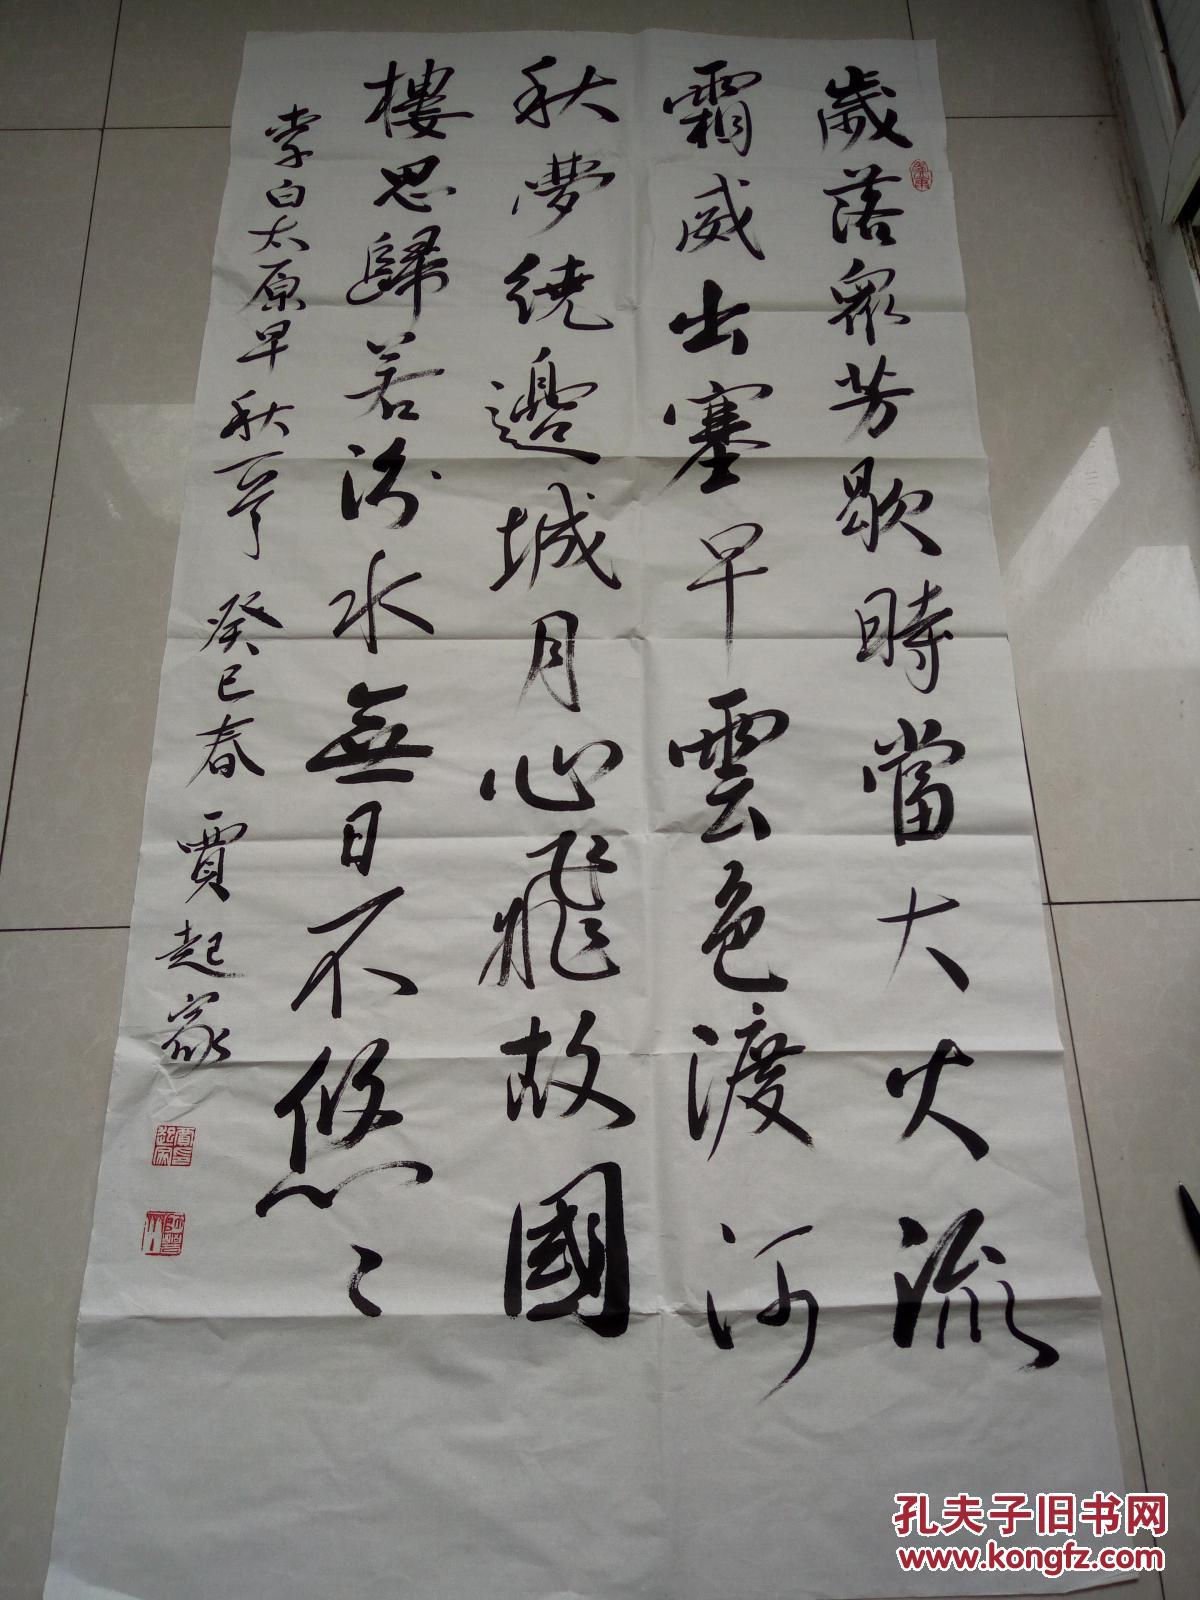 歲落眾芳歇時當大火流
霜威出塞早雲色渡河
秋夢繞邊城月心飛故國
樓思歸若汾水無日不悠〻
李白太原早秋一首 癸巳春 賈起家
孔夫子旧书网
www.kongfz.com